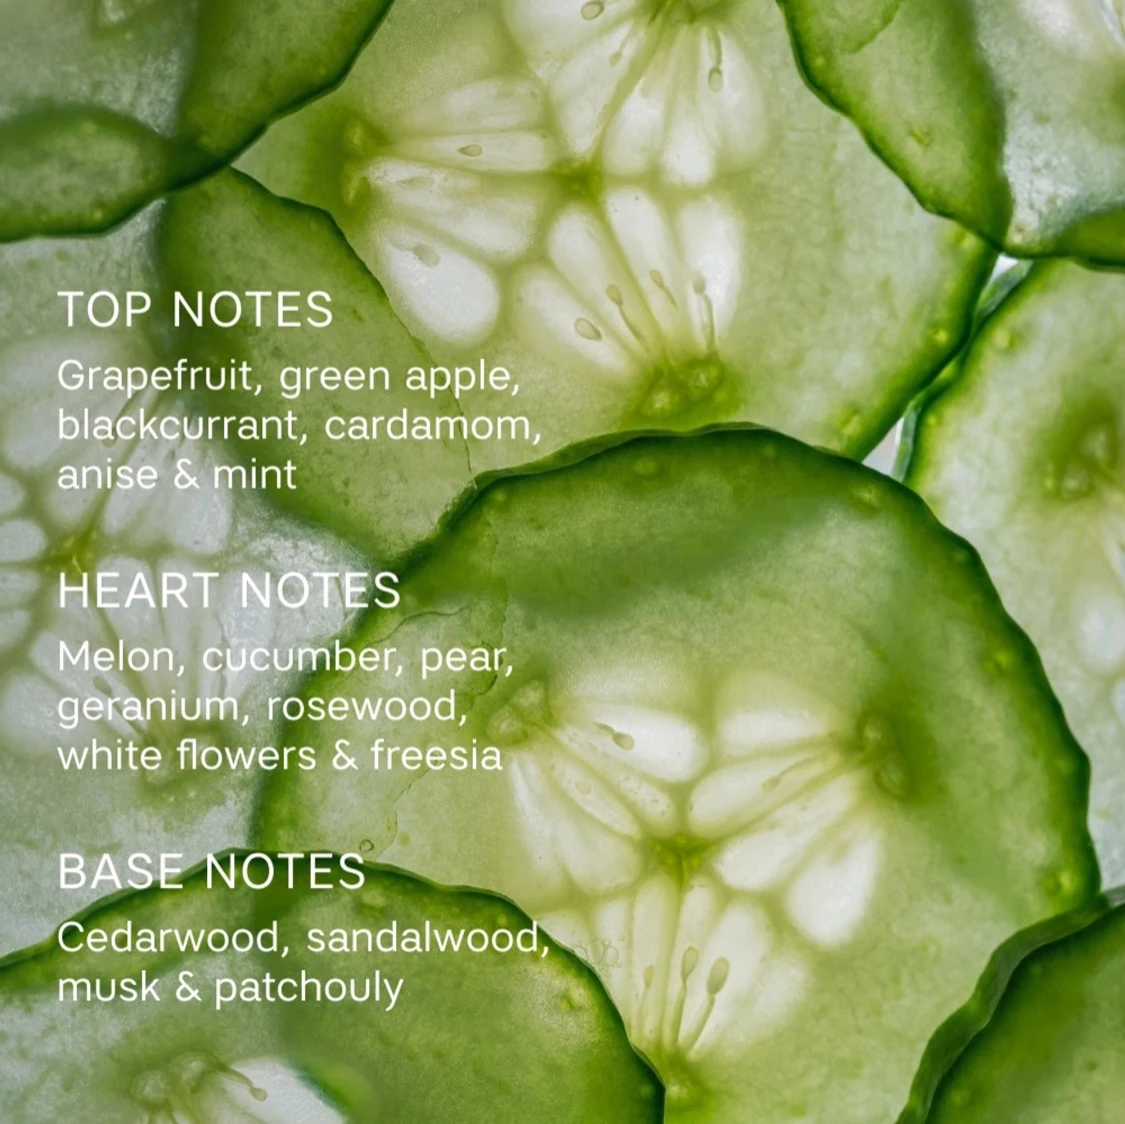 TOP NOTES
Grapefruit, green apple,
blackcurrant, cardamom,
anise & mint
HEART NOTES
Melon, cucumber, pear,
geranium, rosewood,
white flowers & freesia
BASE NOTES
Cedarwood, sandalwood,
musk & patchouly